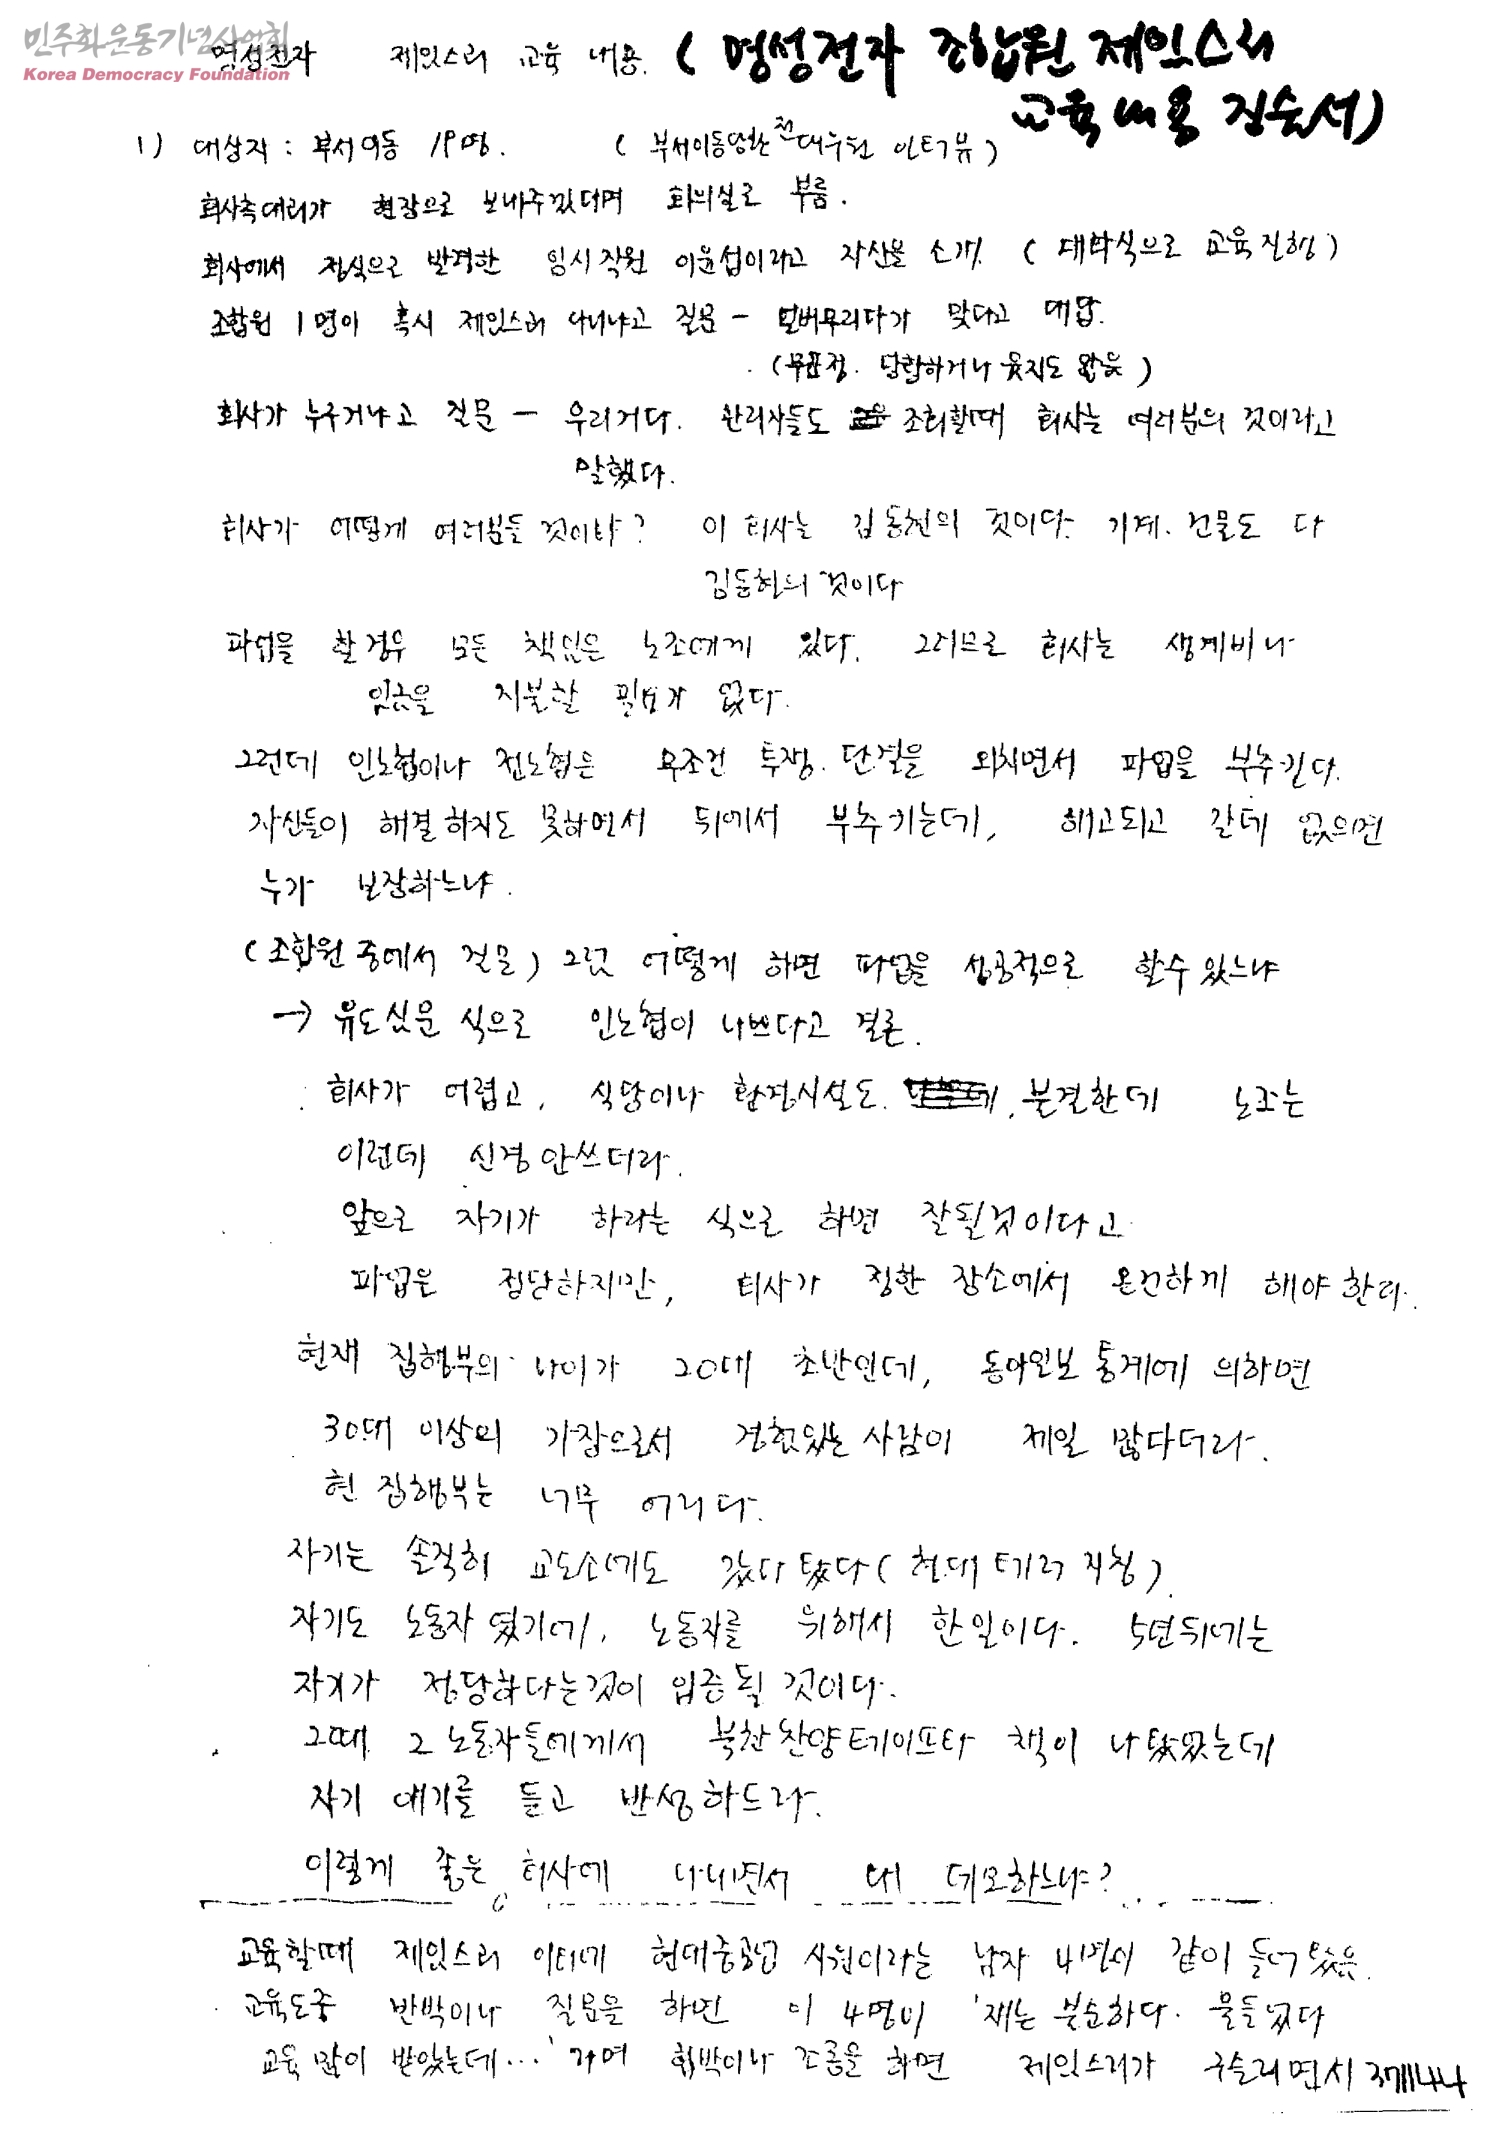 민주화운동기념사업회
Korea Democracy Foundation
명성전자 제임스리 교육 내용. ( 명성전자 조합원 제임스리
교육내용 진술서)
1) 대상자 : 부서이동 19명. ( 부서이동당한 전대수원 인터뷰 )
회사측대리가 현장으로 보내주겠다며 회의실로 부름.
회사에서 정식으로 발령한 임시직원 이윤섭이라고 자신을 소개. ( 대화식으로 교육진행 )
조합원 1명이 혹시 제임스리 아니냐고 질문 - 얼버무리다가 맞다고 대답.
(무표정. 당황하거나 웃지도 않음 )
회사가 누구거냐고 질문 - 우리거다. 관리자들도 조회할때 회사는 여러분의 것이라고
말했다.
회사가 어떻게 여러분들 것이냐? 이 회사는 김동천의 것이다. 기계. 건물도 다
김동천의 것이다
파업을 할경우 모든 책임은 노조에게 있다. 그러므로 회사는 생계비나
임금을 지불할 필요가 없다.
그런데 인노협이나 전노협은 무조건 투쟁. 단결을 외치면서 파업을 부추긴다.
자신들이 해결하지도 못하면서 뒤에서 부추기는데, 해고되고 갈데 없으면
누가 보장하느냐.
(조합원 중에서 질문) 그럼 어떻게 하면 파업을 성공적으로 할수 있느냐
→ 유도심문 식으로 인노협이 나쁘다고 결론.
회사가 어렵고, 식당이나 환경시설도. 불결한데 노조는
이런데 신경 안쓰더라.
앞으로 자기가 하라는 식으로 하면 잘될것이다고
파업은 정당하지만, 회사가 정한 장소에서 온건하게 해야 한다.
현재 집행부의 나이가 20대 초반인데, 동아일보 통계에 의하면
30대 이상의 가장으로서 경험있는 사람이 제일 많다더라.
현 집행부는 너무 어리다.
자기는 솔직히 교도소에도 갔다 왔다 ( 현대 테러 지칭 )
자기도 노동자 였기에, 노동자를 위해서 한일이다. 5년뒤에는
자기가 정당하다는것이 입증될 것이다.
그때 그 노동자들에게서 북한 찬양 테이프타 책이 나왔었는데
자기 얘기를 듣고 반성하드라.
이렇게 좋은 회사에 다니면서 왜 데모하느냐?
교육할때 제임스리 이외에 현대중공업 사원이라는 남자 4명이 같이 들어 왔음.
교육도중 반박이나 질문을 하면 이 4명이 '쟤는 불순하다. 물들었다
교육 많이 받았는데...' 하며 협박이나 조롱을 하면 제임스리가 구슬리면서 계1144